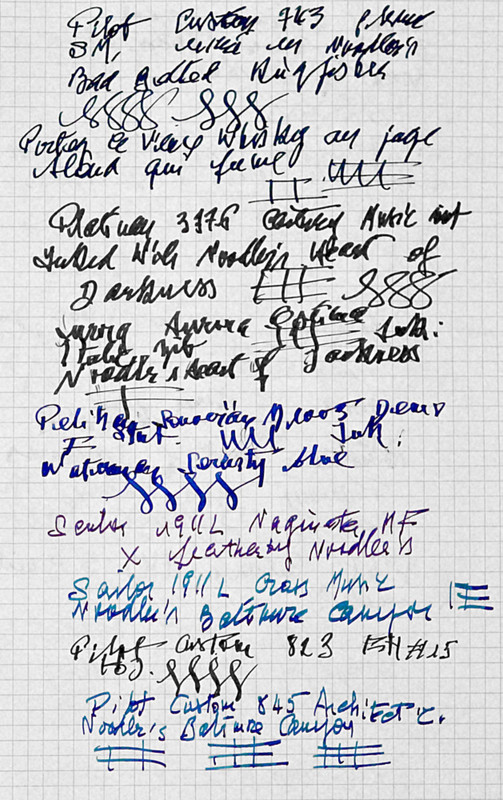 Pilot Custom 743
SM, in Noodler's
Bad Belted Kingfisher
Portez ce vieux Whisky au juge
blond qui fume
Platinum 3776 Century Music nut
Inked With Noodler's Heart of
Darkness
Aurora Optima Ink:
nib
Noodler's Heart of Darkness
Pelikan Souverän M Demo
F Ink:
Waterman Serenity blue
Sailor 1911L Naginata MF
X feathering Noodler's
Sailor 1911L Cross Music
Noodler's Baltimore Canyon
Pilot Custom 823 #15
Pilot Custom 845 Architect
Noodler's Baltimore Canyon